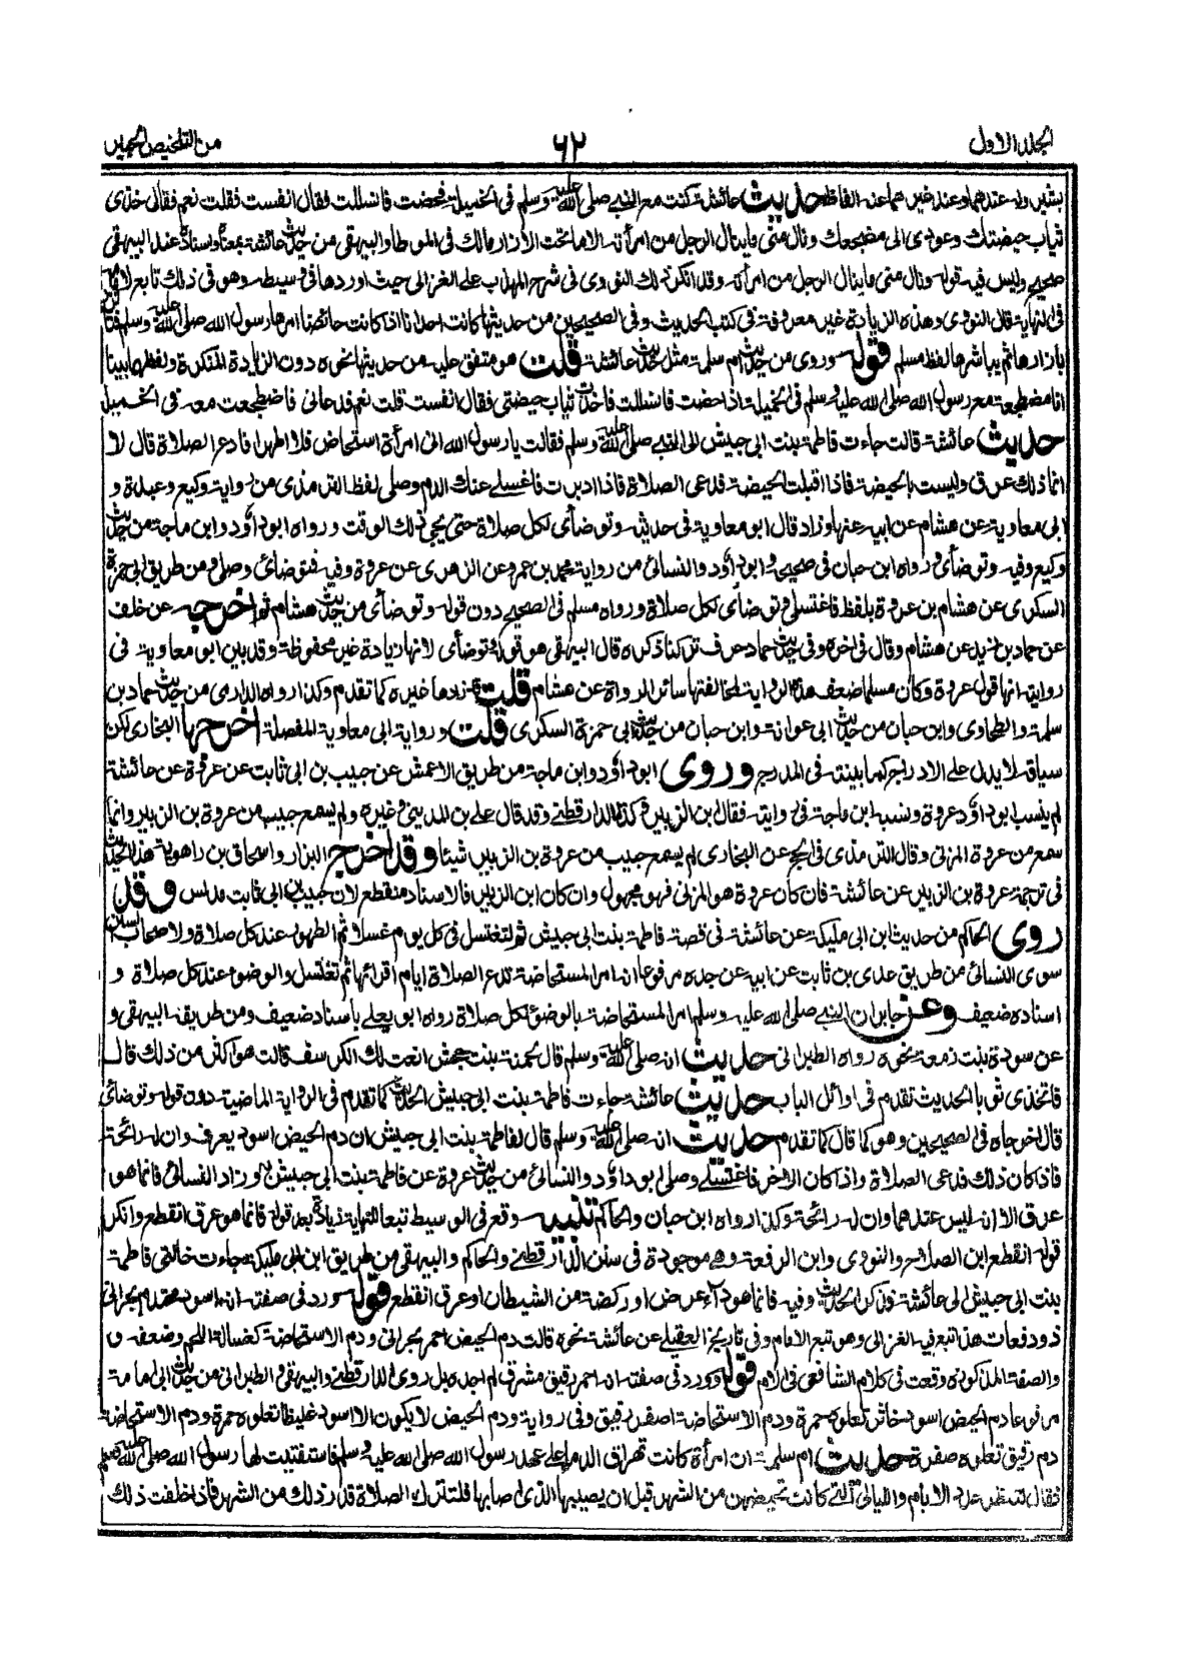 الجلد الاول
٦٢
من التلخيص الحبير
بشير وله عندهما وعند غيرهما عنه الفاظ حديث عائشة كنت مع النبي صلى الله عليه وسلم في الخميلة فحضت فانسللت فقال انفست فقلت نعم فقال خذي
ثياب حيضتك وعودي الى مضجعك ونال مني ما ينال الرجل من امرأته الا ما تحت الازار مالك في الموطا والبيهقي من حديث عائشة بمعناه واسناده عند البيهقي
صحيح وليس فيه قوله ونال مني ما ينال الرجل من امرأته وقد انكر ذلك النووي في شرح المهذب على الغزالي حيث اوردها في وسيطه وهو في ذلك تابع لامامه
في النهاية قال النووي وهذه الزيادة غير معروفة في كتب الحديث وفي الصحيحين من حديثها كانت احدانا اذا كانت حائضا امرها رسول الله صلى الله عليه وسلم فتأتزر
بازارها ثم يباشرها لفظ مسلم قوله وروي من حديث ام سلمة مثل حديث عائشة قلت هو متفق عليه من حديثها نحوه دون الزيادة المنكرة ولفظها بينا
انا مضطجعة مع رسول الله صلى الله عليه وسلم في الخميلة اذ حضت فانسللت فاخذت ثياب حيضتي فقال انفست قلت نعم فدعاني فاضطجعت معه في الخميلة
حديث عائشة قالت جاءت فاطمة بنت ابي حبيش الى النبي صلى الله عليه وسلم فقالت يا رسول الله اني امرأة استحاض فلا اطهر افادع الصلاة قال لا
انما ذلك عرق وليست بالحيضة فاذا اقبلت الحيضة فدعي الصلاة فاذا ادبرت فاغسلي عنك الدم وصلي لفظ الترمذي من رواية وكيع وعبدة و
ابي معاوية عن هشام عن ابيه عنها وزاد قال ابو معاوية في حديثه وتوضأي لكل صلاة حتى يجئ ذلك الوقت ورواه ابو داؤد وابن ماجة من حديث
وكيع وفيه وتوضأي ورواه ابن حبان في صحيحه وابو داؤد والنسائي من رواية محمد بن عمرو عن الزهري عن عروة وفيه فتوضائي وصلي ومن طريق ابي حمزة
السكري عن هشام بن عروة بلفظ فاغتسلي وتوضأي لكل صلاة ورواه مسلم في الصحيح دون قوله وتوضأي من حديث هشام ثم اخرجه عن خلف
عن حماد بن زيد عن هشام وقال في اخره وفي حديث حماد حرف تركنا ذكره قال البيهقي هو قوله وتوضأي لانها زيادة غير محفوظة وقد بين ابو معاوية في
روايته انها قول عروة وكان مسلما ضعف هذه الرواية لمخالفتها سائر الرواة عن هشام قلت قد زادها غيره كما تقدم وكذا رواه الدارمي من حديث حماد بن
سلمة والطحاوي وابن حبان من حديث ابي عوانة وابن حبان من حديث ابي حمزة السكري قلت ورواية ابي معاوية المفصلة اخرجها البخاري لكن
سياقه لا يدل على الادراج كما بينته في المدرج وروى ابو داؤد وابن ماجة من طريق الاعمش عن حبيب بن ابي ثابت عن عروة عن عائشة
لم ينسب ابو داؤد عروة ونسبه ابن ماجة في روايته فقال ابن الزبير وكذا الدارقطني وقد قال علي بن المديني وغيره ولم يسمع حبيب من عروة بن الزبير وانما
سمع من عروة المزني وقال الترمذي في الحج عن البخاري لم يسمع حبيب من عروة بن الزبير شيئا وقد اخرج البزار واسحاق بن راهوية هذا الحديث
في ترجمة عروة بن الزبير عن عائشة فان كان عروة هو المزني فهو مجهول وان كان ابن الزبير فالاسناد منقطع لان حبيب بن ابي ثابت مدلس وقد
روى الحاكم من حديث ابن ابي مليكة عن عائشة في قصة فاطمة بنت ابي حبيش ثم لتغتسل في كل يوم غسلا ثم الطهور عند كل صلاة ولاصحاب السنن
سوى النسائي من طريق عدي بن ثابت عن ابيه عن جده مرفوعا انه امر المستحاضة تدع الصلاة ايام اقرائها ثم تغتسل والوضوء عند كل صلاة و
اسناده ضعيف وعن جابر ان النبي صلى الله عليه وسلم امر المستحاضة بالوضوء لكل صلاة رواه ابو يعلى باسناد ضعيف ومن طريقه البيهقي و
عن سودة بنت زمعة نحوه رواه الطبراني حديث انه صلى الله عليه وسلم قال لحمنة بنت جحش انعت لك الكرسف قالت هو اكثر من ذلك قال
فاتخذي ثوبا الحديث تقدم في اوائل الباب حديث عائشة جاءت فاطمة بنت ابي حبيش الحديث كما تقدم في الرواية الماضية دون قوله وتوضأي
قال اخرجاه في الصحيحين وهو كما قال كما تقدم حديث انه صلى الله عليه وسلم قال لفاطمة بنت ابي حبيش ان دم الحيض اسود يعرف وان له رائحة
فاذا كان ذلك فدعي الصلاة واذا كان الاخر فاغتسلي وصلي ابو داؤد والنسائي من حديث عروة عن فاطمة بنت ابي حبيش وزاد النسائي فانما هو
عرق الا انه ليس عندهما وان له رائحة وكذا رواه ابن حبان والحاكم تنبيه وقع في الوسيط تبعا للنهاية زيادة بعد قوله فانما هو عرق انقطع وانكر
قوله انقطع ابن الصلاح والنووي وابن الرفعة وهي موجودة في سنن الدارقطني والحاكم والبيهقي من طريق ابن ابي مليكة جاءت خالتي فاطمة
بنت ابي حبيش الى عائشة فذكر الحديث وفيه فانما هو داء عرض او ركضة من الشيطان او عرق انقطع قوله ورد في صفته انه اسود محتدم بحراني
ذو دفعات هذا تبع فيه الغزالي وهو تبع الامام وفي تاريخ العقيلي عن عائشة نحوه قالت دم الحيض احمر بحراني ودم الاستحاضة كغسالة اللحم وضعفه و
والصفة المذكورة وقعت في كلام الشافعي في الام قوله وورد في صفته انه احمر رقيق مشرق لم اجده بل روى الدارقطني والبيهقي والطبراني من حديث ابي امامة
مرفوعا دم الحيض اسود خاثر تعلوه حمرة ودم الاستحاضة اصفر رقيق وفي رواية ودم الحيض لا يكون الا اسود غليظا تعلوه حمرة ودم الاستحاضة
دم رقيق تعلوه صفرة حديث ام سلمة ان امرأة كانت تهراق الدم على عهد رسول الله صلى الله عليه وسلم فاستفتيت لها رسول الله صلى الله عليه وسلم
فقال لتنظر عدد الايام والليالي التي كانت تحيضهن من الشهر قبل ان يصيبها الذي اصابها فلتترك الصلاة قدر ذلك من الشهر فاذا خلفت ذلك